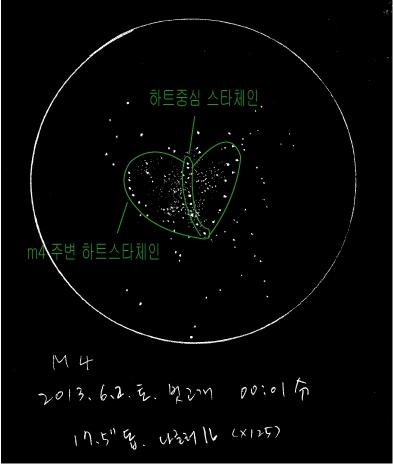 하트중심 스타체인
m4 주변 하트스타체인
M 4
2013. 6. 2. 토. 벗고개 00:01分
17.5" 돕. 나글러16 (x125)